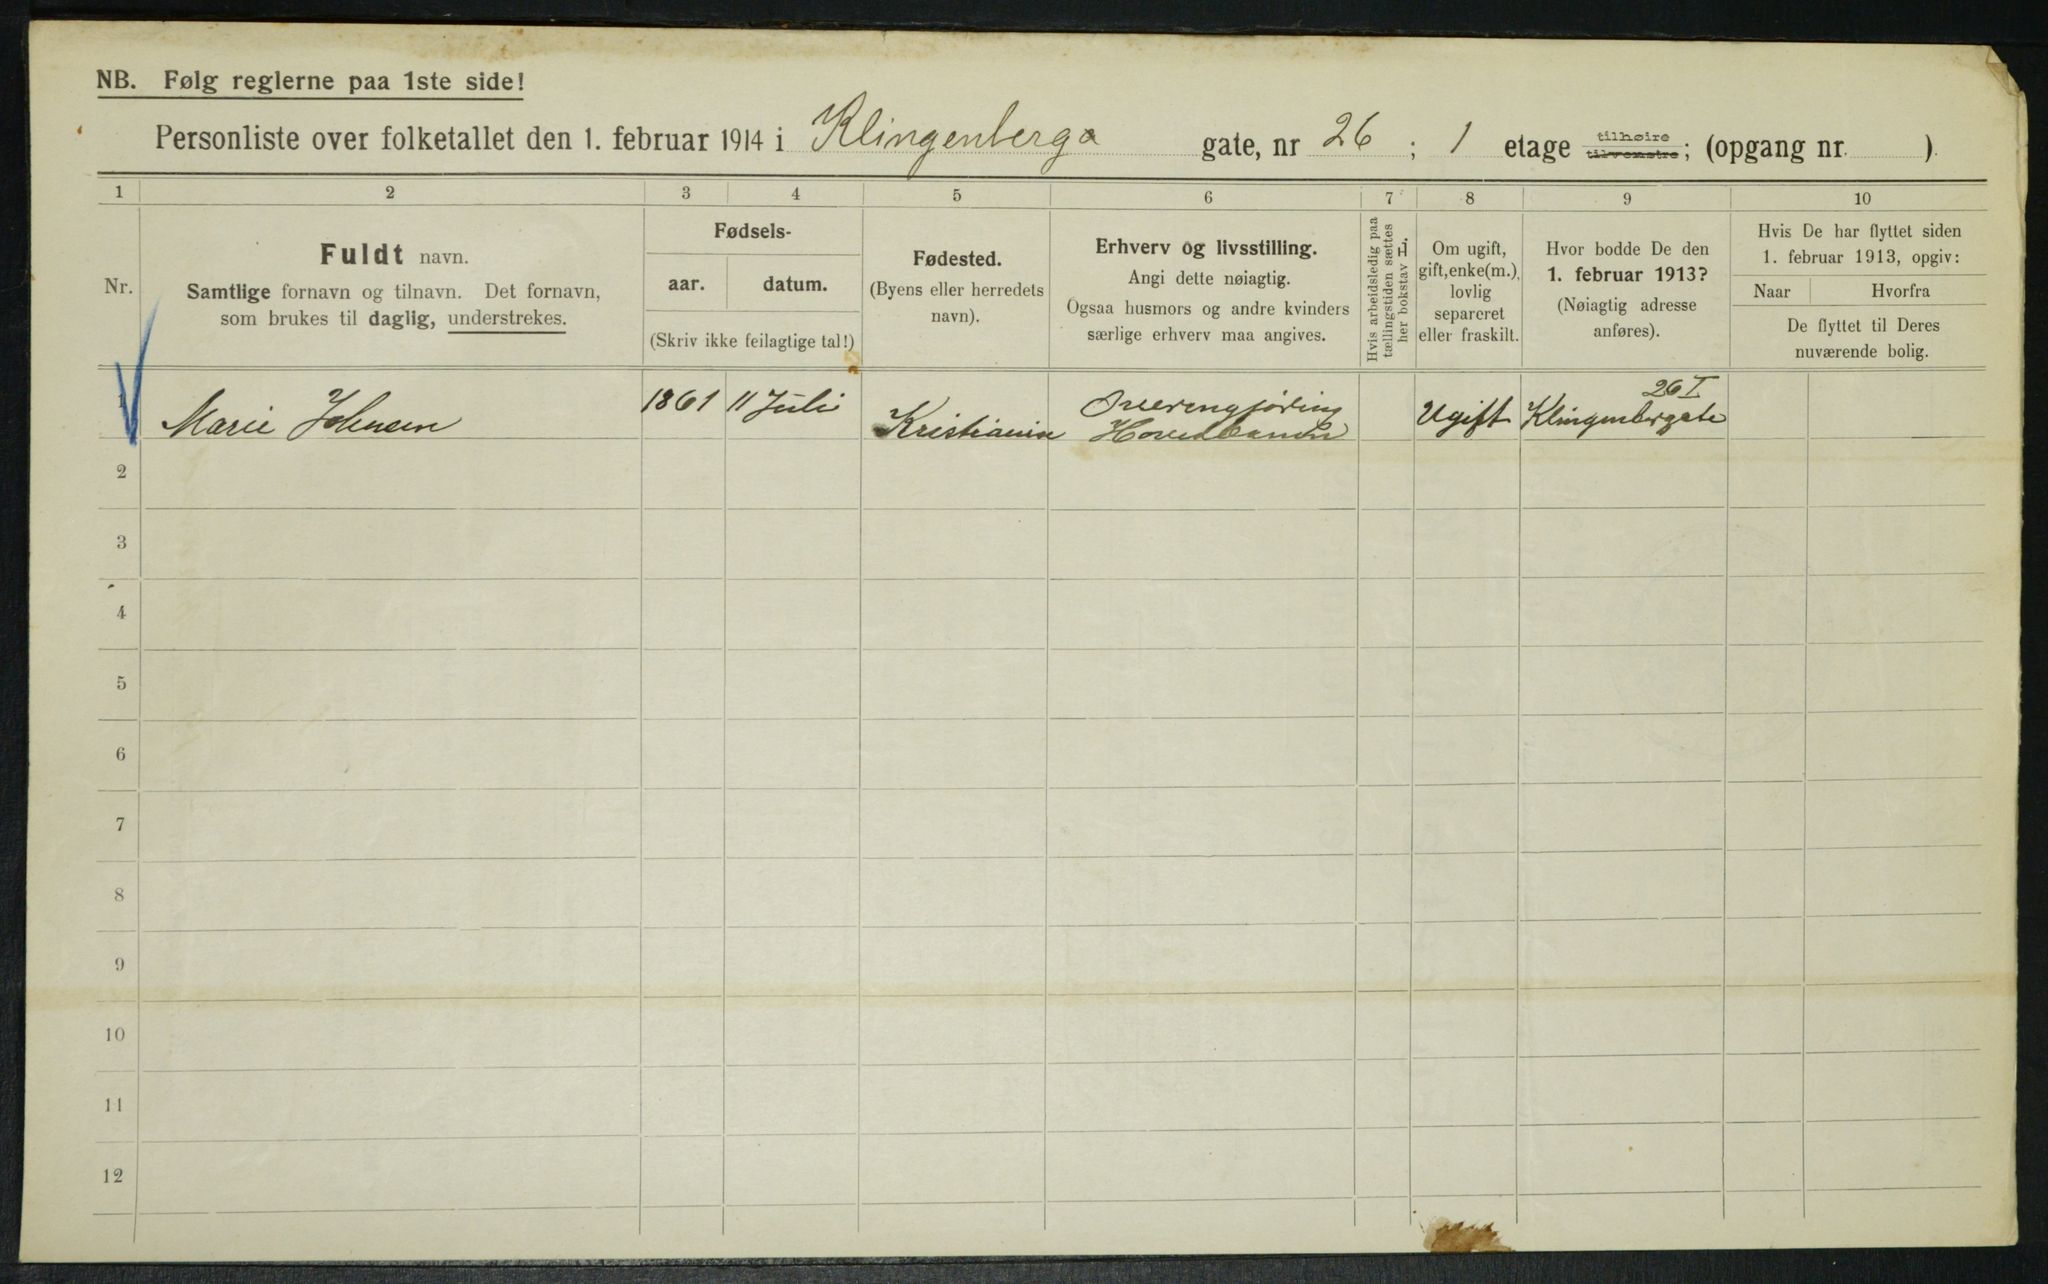 NB. Følg reglerne paa 1ste side!
Personliste over folketallet den 1. februar 1914 i Klingenberga gate, nr 26 ; 1 etage tilhøire tilvenstre; (opgang nr. )
1 2 3 4 5 6 7 8 9 10
Nr.
Fuldt navn.
Samtlige fornavn og tilnavn. Det fornavn,
som brukes til daglig, understrekes.
Fødsels-
aar. datum.
(Skriv ikke feilagtige tal!)
Fødested.
(Byens eller herredets
navn).
Erhverv og livsstilling.
Angi dette nøiagtig.
Ogsaa husmors og andre kvinders
særlige erhverv maa angives.
Hvis arbeidsledig paa
tællingstiden sættes
her bokstav L
Om ugift,
gift, enke(m.),
lovlig
separeret
eller fraskilt.
Hvor bodde De den
1. februar 1913?
(Nøiagtig adresse
anføres).
Hvis De har flyttet siden
1. februar 1913, opgiv:
Naar Hvorfra
De flyttet til Deres
nuværende bolig.
1 Marie Johnsen 1861 11 Juli Kristiania Overengjøring Hovedbanen Ugift Klingenbergate 26 I
2
3
4
5
6
7
8
9
10
11
12